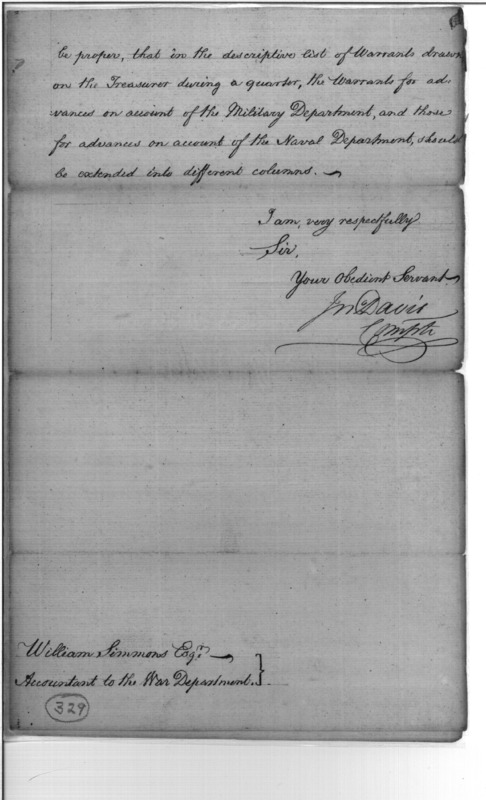 be proper, that in the descriptive list of Warrants drawn
on the Treasurer during a quarter, the Warrants for ad-
vances on account of the Military Department, and those
for advances on account of the Naval Department, should
be extended into different columns.
I am, very respectfully
Sir,
Your Obedient Servant
Jn Davis
Comptr
William Simmons Esqr.
Accountant to the War Department.
329